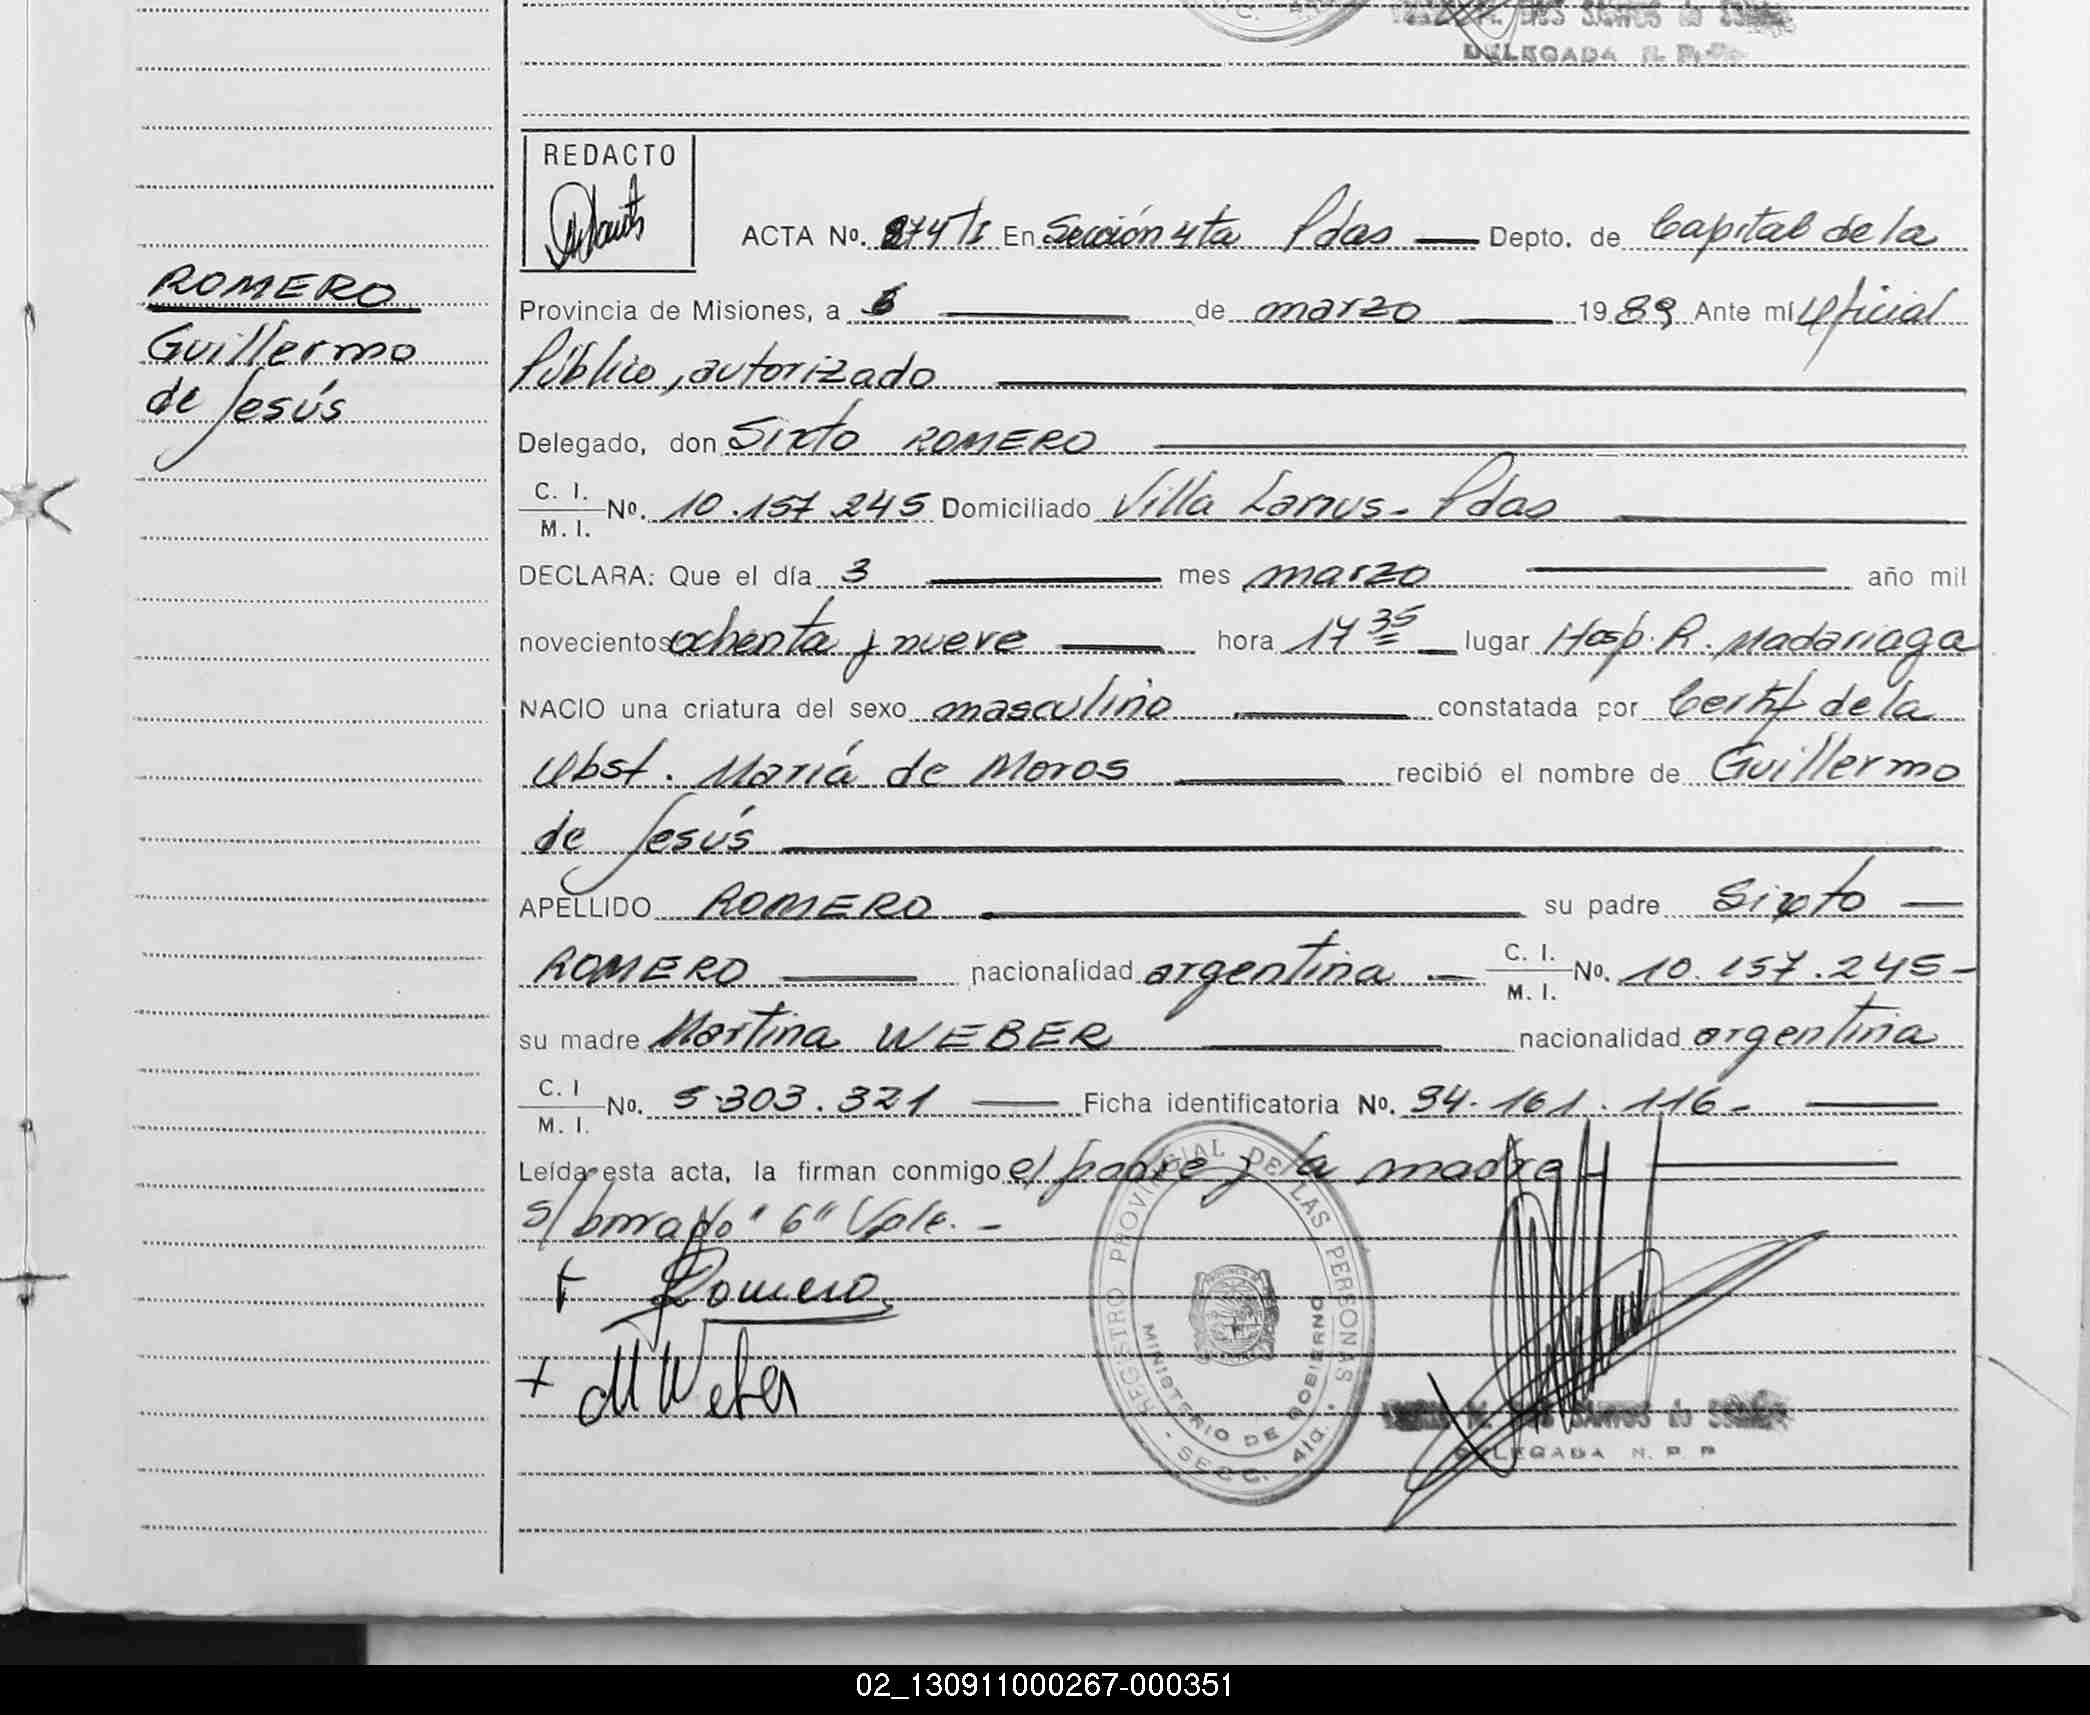 DELEGADA
REDACTO
ACTA No. 274 Ts En Sección 4ta Pdas Depto. de Capital de la
Provincia de Misiones, a 6 de marzo 1989 Ante mí Oficial
Público, autorizado
Delegado, don Sixto ROMERO
C. I.
M. I. No. 10.157.245 Domiciliado Villa Lanus - Pdas
DECLARA: Que el día 3 mes marzo año mil
novecientos ochenta y nueve hora 17 35 lugar Hosp. R. Madariaga
NACIO una criatura del sexo masculino constatada por Certif de la
Obst. María de Moros recibió el nombre de Guillermo
de Jesús
APELLIDO ROMERO su padre Sixto
ROMERO nacionalidad argentina C. I. M. I. No. 10.157.245-
su madre Martina WEBER nacionalidad argentina
C. I M. I. No. 5.303.321 Ficha identificatoria No. 34.161.116-
Leída esta acta, la firman conmigo el padre y la madre -
s/borrado "6" Vale. -
+ Romero
+ M Weber
ROMERO
Guillermo
de Jesús
REGISTRO PROVINCIAL DE LAS PERSONAS
MINISTERIO DE GOBIERNO
- SECC. 4ta. -
DELEGADA
02_130911000267-000351